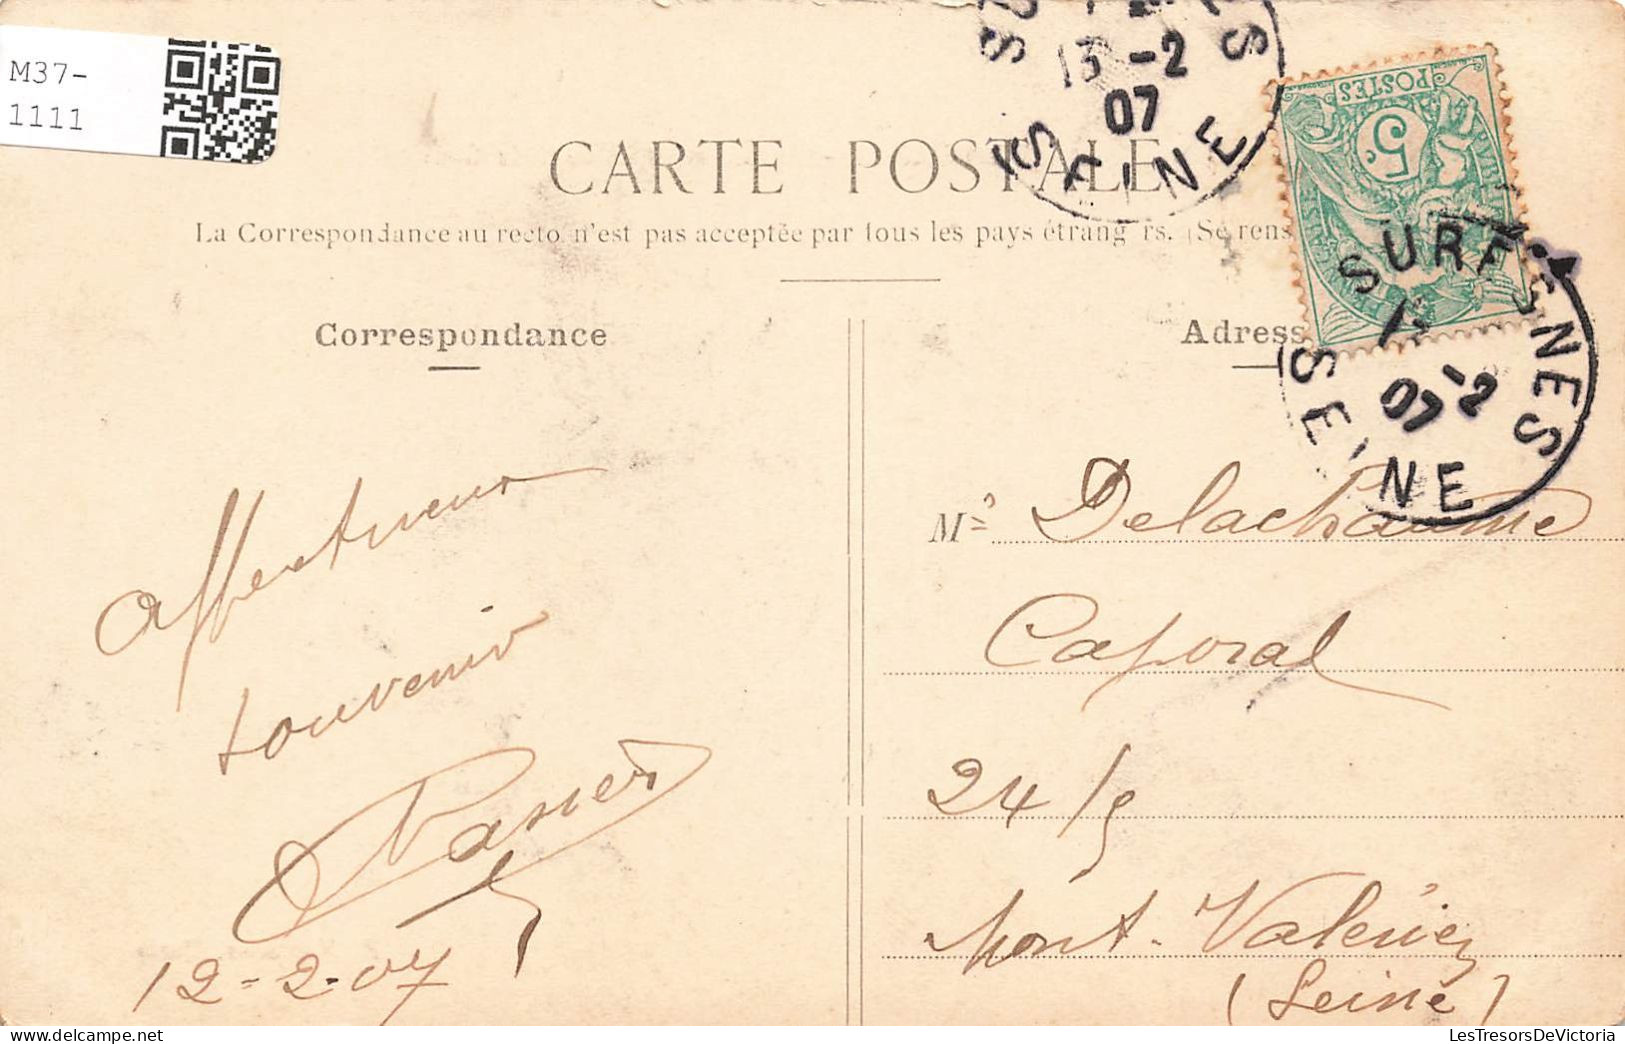 M37-
1111
13 -2
07
SEINE
POSTES
5c
CARTE POSTALE
La Correspondance au recto n'est pas acceptée par tous les pays étrangers. (Se rens
Correspondance
Adress
SURESNES
-2
07
SEINE
Affectueux
souvenir
12-2-07
Mr Delachaume
Caporal
24/5
Mont-Valérien
(Seine)
LesTresorsDeVictoria
MADE IN FRANCE